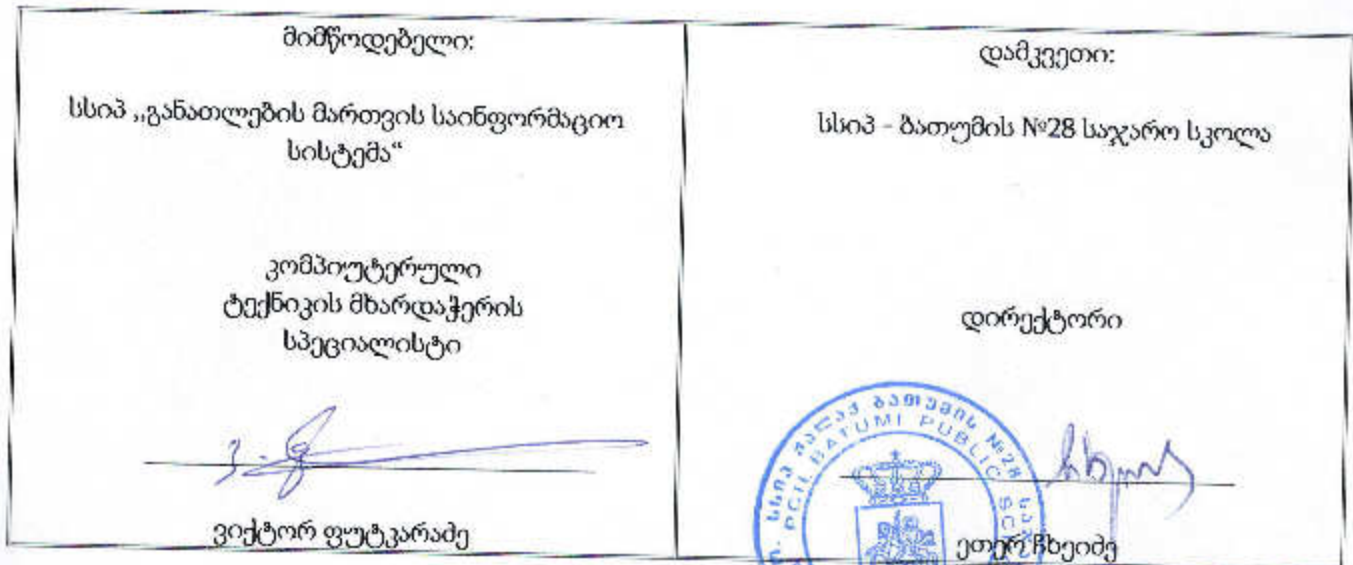 მიმწოდებელი:
სსიპ „განათლების მართვის საინფორმაციო
სისტემა“
კომპიუტერული
ტექნიკის მხარდაჭერის
სპეციალისტი
ვიქტორ ფუტკარაძე
დამკვეთი:
სსიპ - ბათუმის №28 საჯარო სკოლა
დირექტორი
ეთერ ჩხეიძე
სსიპ ქალაქ ბათუმის №28
BATUMI PUBLIC